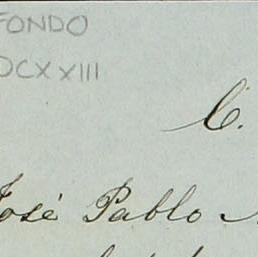 FONDO
DCXXIII
C.
José Pablo